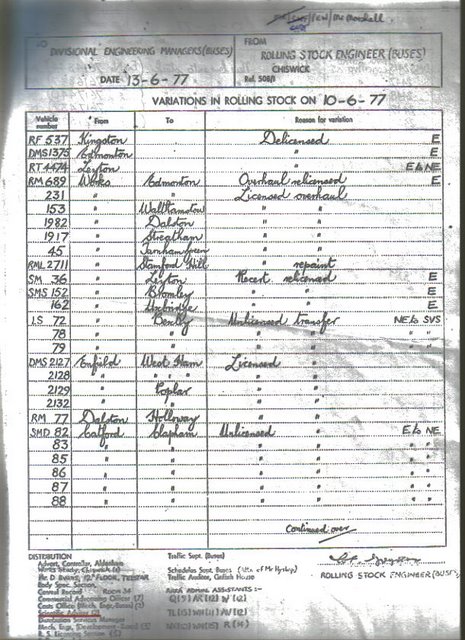 TO
DIVISIONAL ENGINEERING MANAGERS (BUSES)
DATE 13-6-77
FROM
ROLLING STOCK ENGINEER (BUSES)
CHISWICK
Ref. 508/1
VARIATIONS IN ROLLING STOCK ON 10-6-77
Vehicle number From To Reason for variation
RF 537 Kingston Delicensed E
DMS 1375 Edmonton " E
RT 4474 Leyton " E to NE
RM 689 Works Edmonton Overhaul relicensed E
231 " Licensed overhaul
153 " Walthamstow " "
1982 " Dalston " "
1917 " Streatham " "
45 " Turnham Green " "
RML 2711 " Stamford Hill " repaint
SM 36 " Leyton Recert. relicensed E
SMS 152 " Bromley " " E
162 " Uxbridge " " E
LS 72 " Benby Unlicensed transfer NE to SVS
78 " " " " " "
79 " " " " " "
DMS 2127 Enfield West Ham Licensed "
2128 " " " " "
2129 " Poplar " "
2132 " " " "
RM 77 Dalston Holloway " "
SMD 82 Catford Clapham Unlicensed " E to NE
83 " " " " " "
85 " " " " " "
86 " " " " " "
87 " " " " " "
88 " " " " " "
Continued over
DISTRIBUTION
Advert. Controller, Aldenham
Works Manager, Chiswick (2)
Mr. D. Evans, 12th FLOOR, TELSTAR
Body Spec. Section,
Central Record ROOM 34
Commercial Advertising Officer (7)
Costs Office (Mech. Engr. Buses) (3)
Scientific Adviser (2)
Distribution Services Manager
R. S. Licensing Section (5)
Traffic Supt. (Buses)
Schedules Supt. Buses (Attn. of Mr Hyslop)
Traffic Auditor, Griffith House
AREA ADMIN. ASSISTANTS :-
ROLLING STOCK ENGINEER (BUSES)